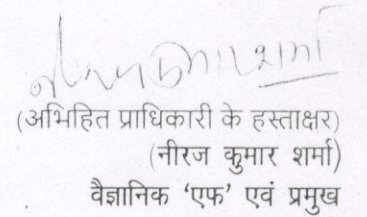 नीरज कुमार शर्मा
(अभिहित प्राधिकारी के हस्ताक्षर)
(नीरज कुमार शर्मा)
वैज्ञानिक ‘एफ’ एवं प्रमुख